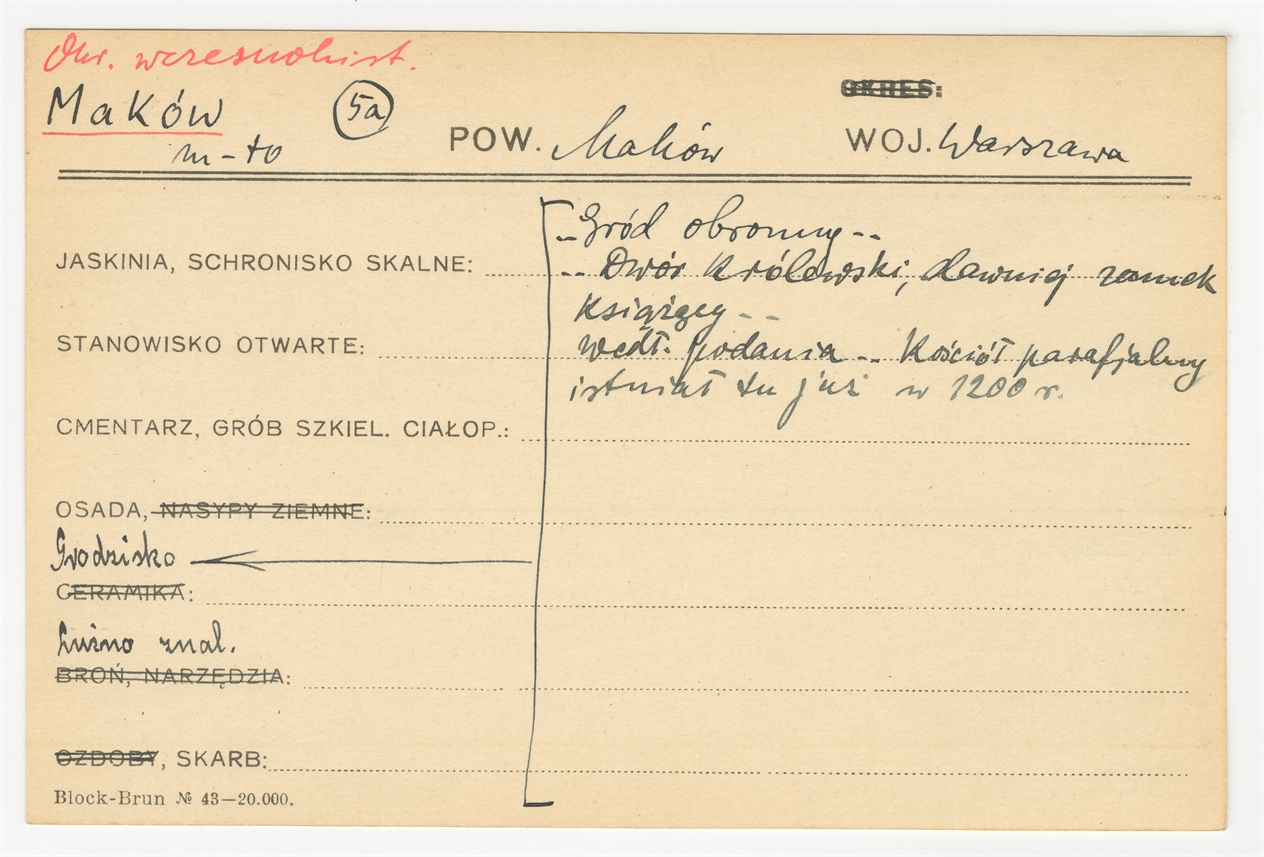 Okr. wczesnohist.
Maków 5a OKRES:
m-to POW. Maków WOJ. Warszawa
„Gród obronny"
JASKINIA, SCHRONISKO SKALNE: „Dwór Królewski, dawniej zamek
książęcy"
STANOWISKO OTWARTE: wedł. podania „Kościół parafjalny
istniał tu już w 1200 r.
CMENTARZ, GRÓB SZKIEL. CIAŁOP.:
OSADA, NASYPY ZIEMNE:
Grodzisko
CERAMIKA:
Luźno znal.
BROŃ, NARZĘDZIA:
OZDOBY, SKARB:
Block-Brun № 43—20.000.